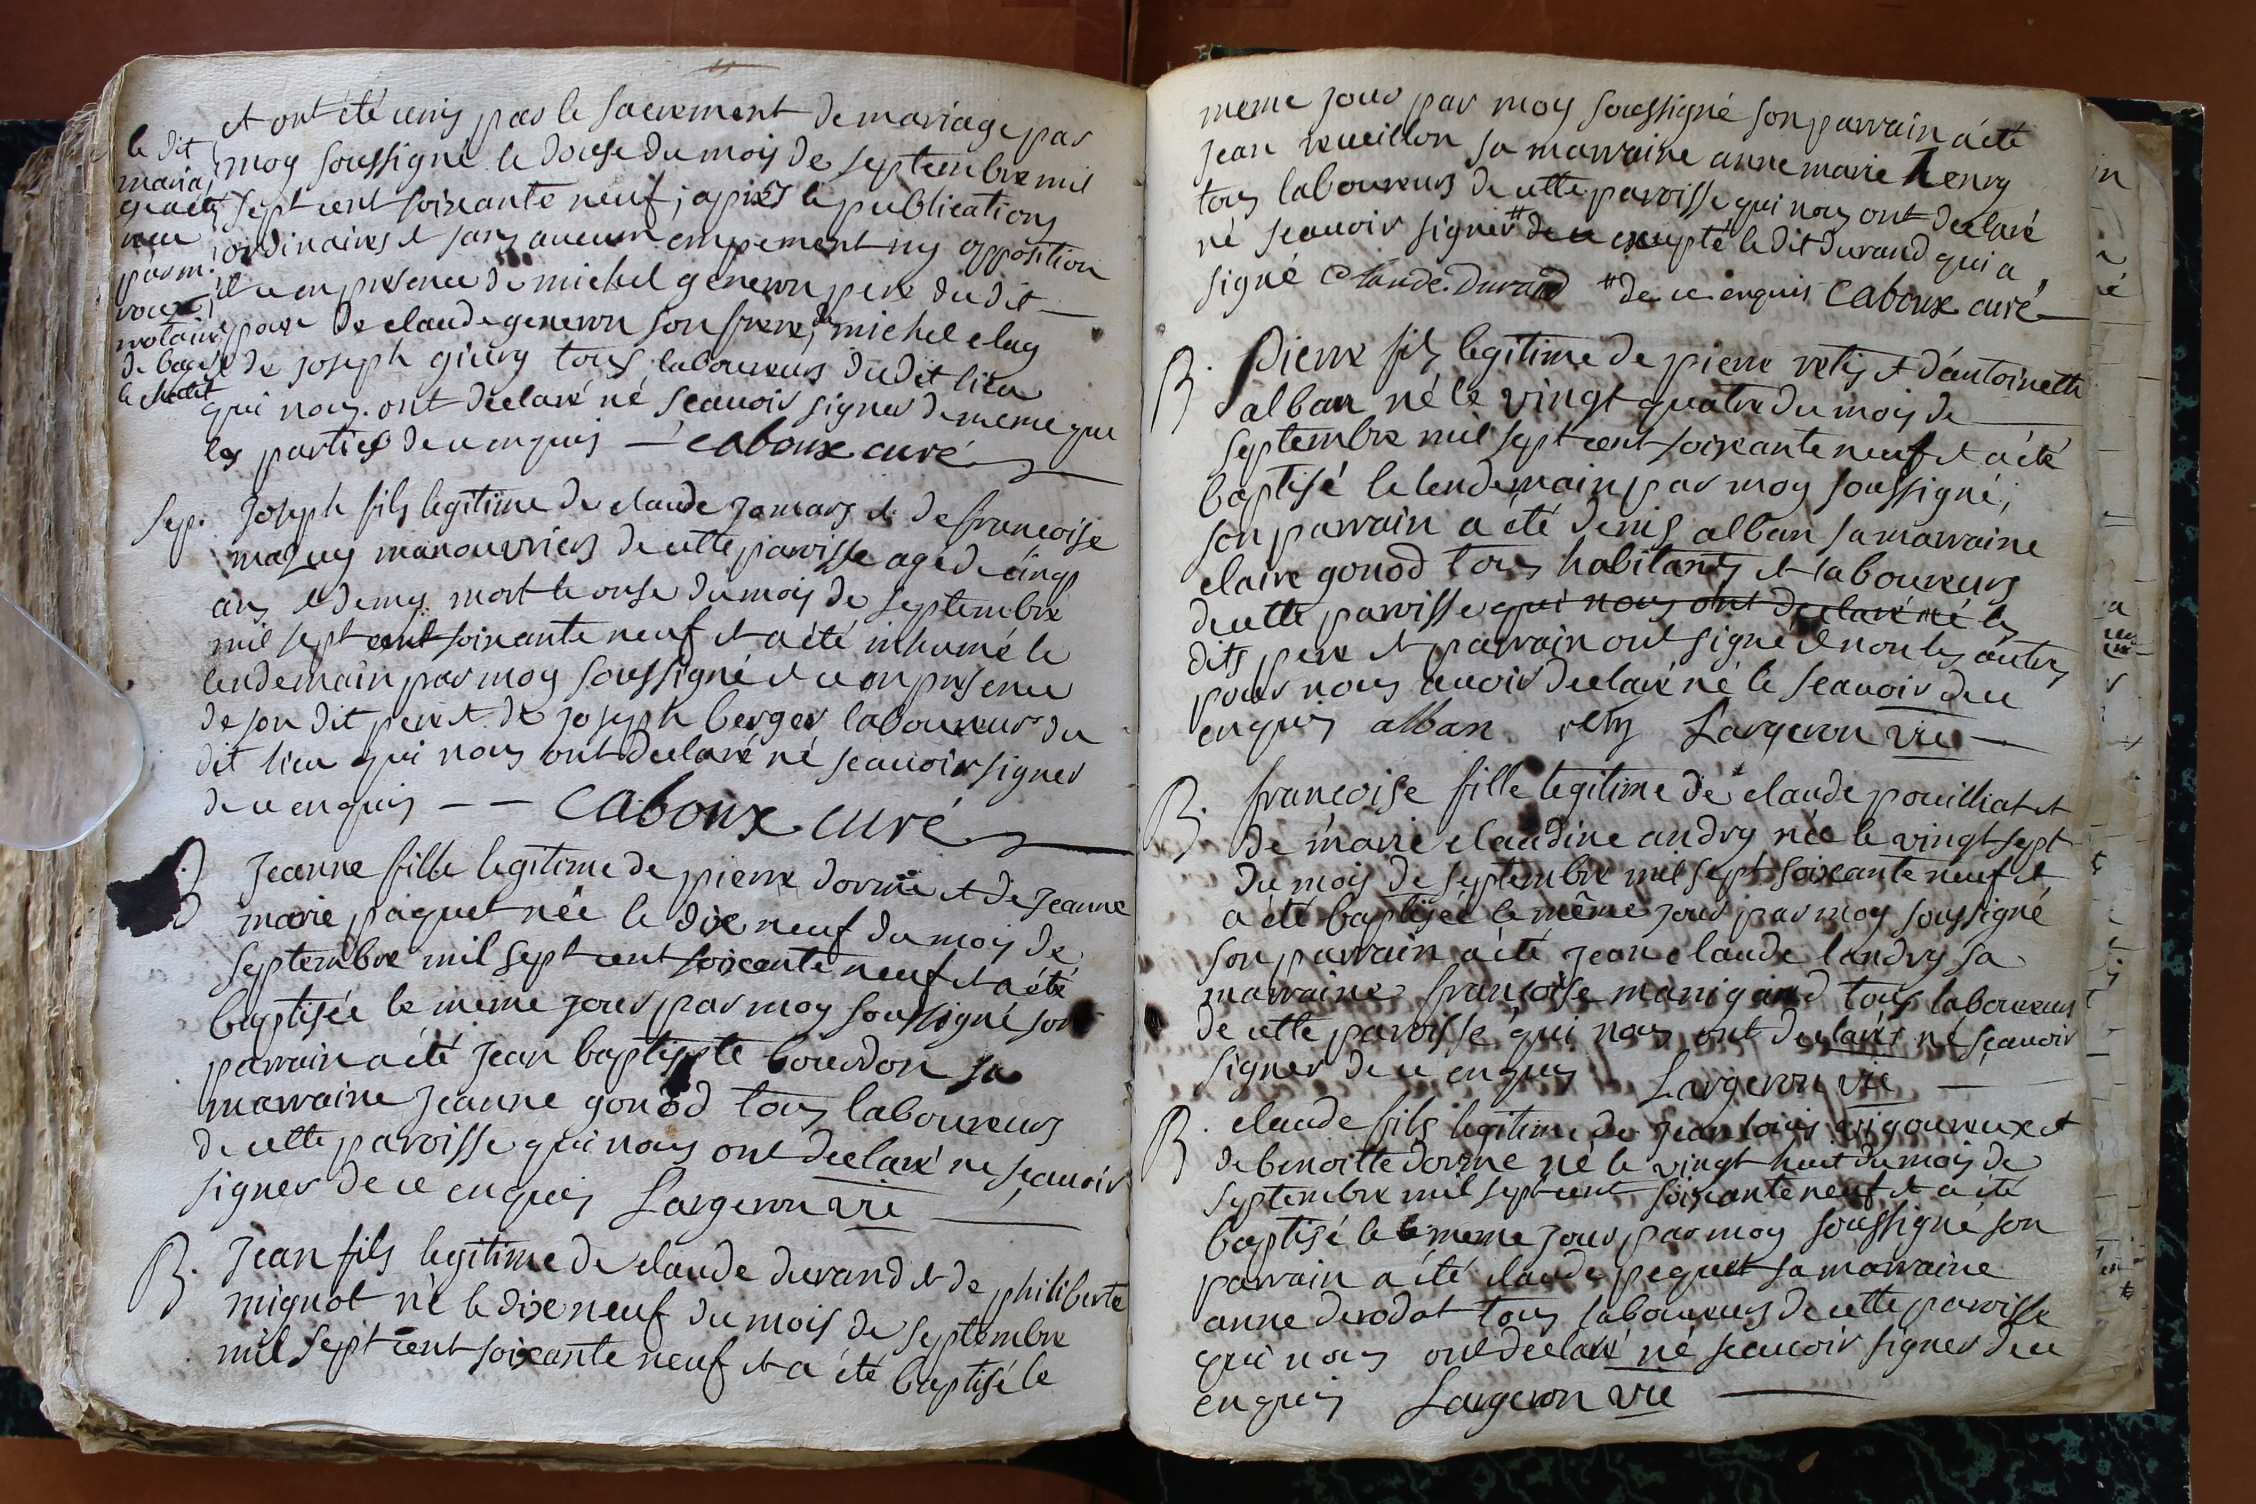 et ont été unis par le sacrement de mariage par
moy soussigné le douse du mois de septembre mil
sept cent soixante neuf, après le publications
ordinaires et sans aucun empement ny opposition
et ce en presence de michel generon pere du dit
epoux de claude generon son frere, de michel eluy
et de joseph giury tous laboureurs dudit lieu
qui nous ont declaré né sçauoir signer de meme que
les parties de ce enquis — caboux curé
le dit
maria,
ge a été
receu
par m.
roux
notaire
de bagé
le chatel
Sep. Joseph fils legitime de claude jamars et de francoise
mazuy manouvriers de cette paroisse age de cinq
ans et demy mort le onse du mois de septembre
mil sept cent soixante neuf et a été inhumé le
lendemain par moy soussigné et ce en presence
de son dit pere et de joseph berger laboureur du
dit lieu qui nous ont declaré né sçauoir signer
de ce enquis — — caboux curé
Jeanne fille legitime de pierre dorme et de jeanne
marie paquet née le dix neuf du mois de
septembre mil sept cent soixante neuf et a été
baptisée le meme jour par moy soussigné son
parrain a été jean baptiste bourdon sa
marraine jeanne gonod tous laboureurs
de cette paroisse qui nous ont declaré ne sçauoir
signer de ce enquis Largeron vic
B. Jean fils legitime de claude durand et de philiberte
mignot né le dix neuf du mois de septembre
mil sept cent soixante neuf et a été baptisé le
meme jour par moy soussigné son parrain a été
jean reveillon sa marraine anne marie henry
tous laboureurs de cette paroisse qui nous ont declaré
né sçauoir signer # de ce excepté le dit durand qui a
signé Claude. Durand # de ce enquis caboux curé
B. Pierre fils legitime de pierre rety et d'antoinette
alban né le vingt quatre du mois de
septembre mil sept cent soixante neuf et a été
baptisé le lendemain par moy soussigné,
son parrain a été denis alban sa marraine
claire gonod tous habitants et laboureurs
de cette paroisse qui nous ont declaré né les
dits pere et parrain ont signé et non les autres
pour nous auoir declaré né le sçauoir de ce
enquis alban rety Largeron vic
B. francoise fille legitime de claude pouilliat et
de marie claudine andry née le vingt sept
du mois de septembre mil sept soixante neuf et
a été baptisée le même jour par moy soussigné
son parrain a été jean claude landry sa
marraine francoise manigand tous laboureurs
de cette paroisse qui nous ont declarés né sçauoir
signer de ce enquis Largeron vic
B. claude fils legitime de jean louis vigoureux et
de benoitte dorme né le vingt huit du mois de
septembre mil sept cent soixante neuf et a été
baptisé le meme jour par moy soussigné son
parrain a été claude pequet sa marraine
anne derodat tous laboureurs de cette paroisse
qui nous ont declaré né sçauoir signer de ce
enquis Largeron vic